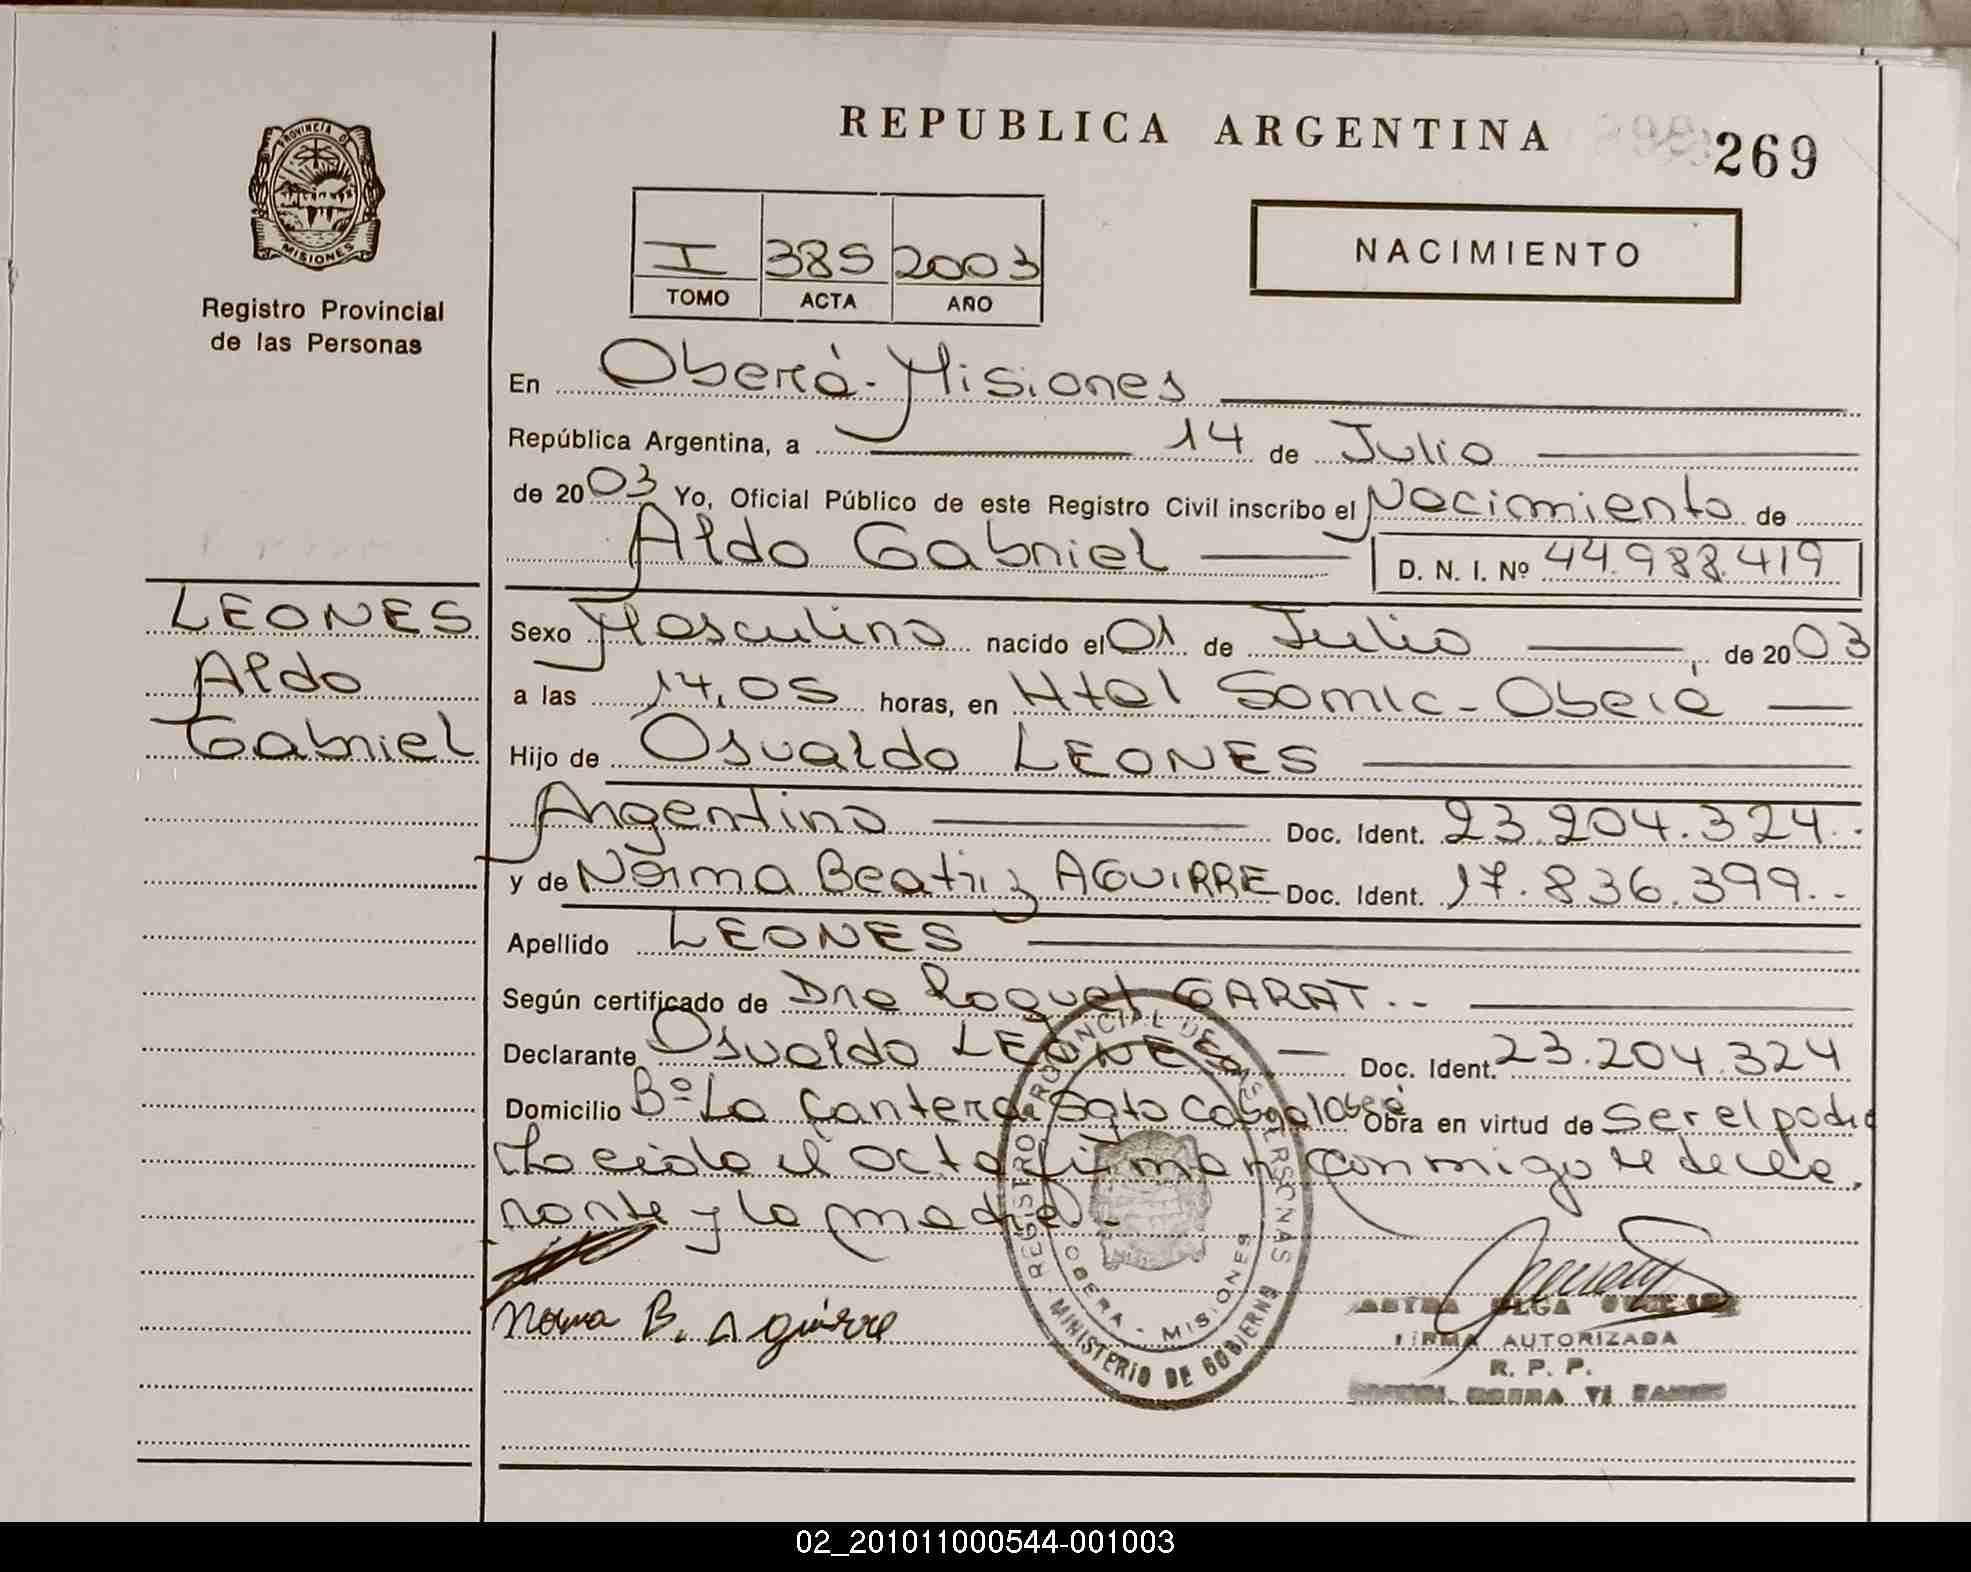 REPUBLICA ARGENTINA
269
PROVINCIA DE
MISIONES
Registro Provincial
de las Personas
I 385 2003
TOMO ACTA AÑO
NACIMIENTO
En Oberá-Misiones
República Argentina, a 14 de Julio
de 2003 Yo, Oficial Público de este Registro Civil inscribo el Nacimiento de
Aldo Gabriel D. N. I. Nº 44.988.419
LEONES
Aldo
Gabriel
Sexo Masculino nacido el 01 de Julio, de 2003
a las 14,05 horas, en Htal Samic-Oberá
Hijo de Osvaldo LEONES
Argentino Doc. Ident. 23.204.324.-
y de Norma Beatriz AGUIRRE Doc. Ident. 17.836.399.-
Apellido LEONES
Según certificado de Dra Raquel GARAT.-
Declarante Osvaldo LEONES Doc. Ident. 23.204.324
Domicilio Bº La Cantera Sgto Cabral Oberá Obra en virtud de ser el padre
Leida el acta firman conmigo el decla
rante y la madre.-
Norma B. Aguirre
REGISTRO PROVINCIAL DE LAS PERSONAS
OBERA - MISIONES
MINISTERIO DE GOBIERNO
OLGA
FIRMA AUTORIZADA
R. P. P.
02_201011000544-001003